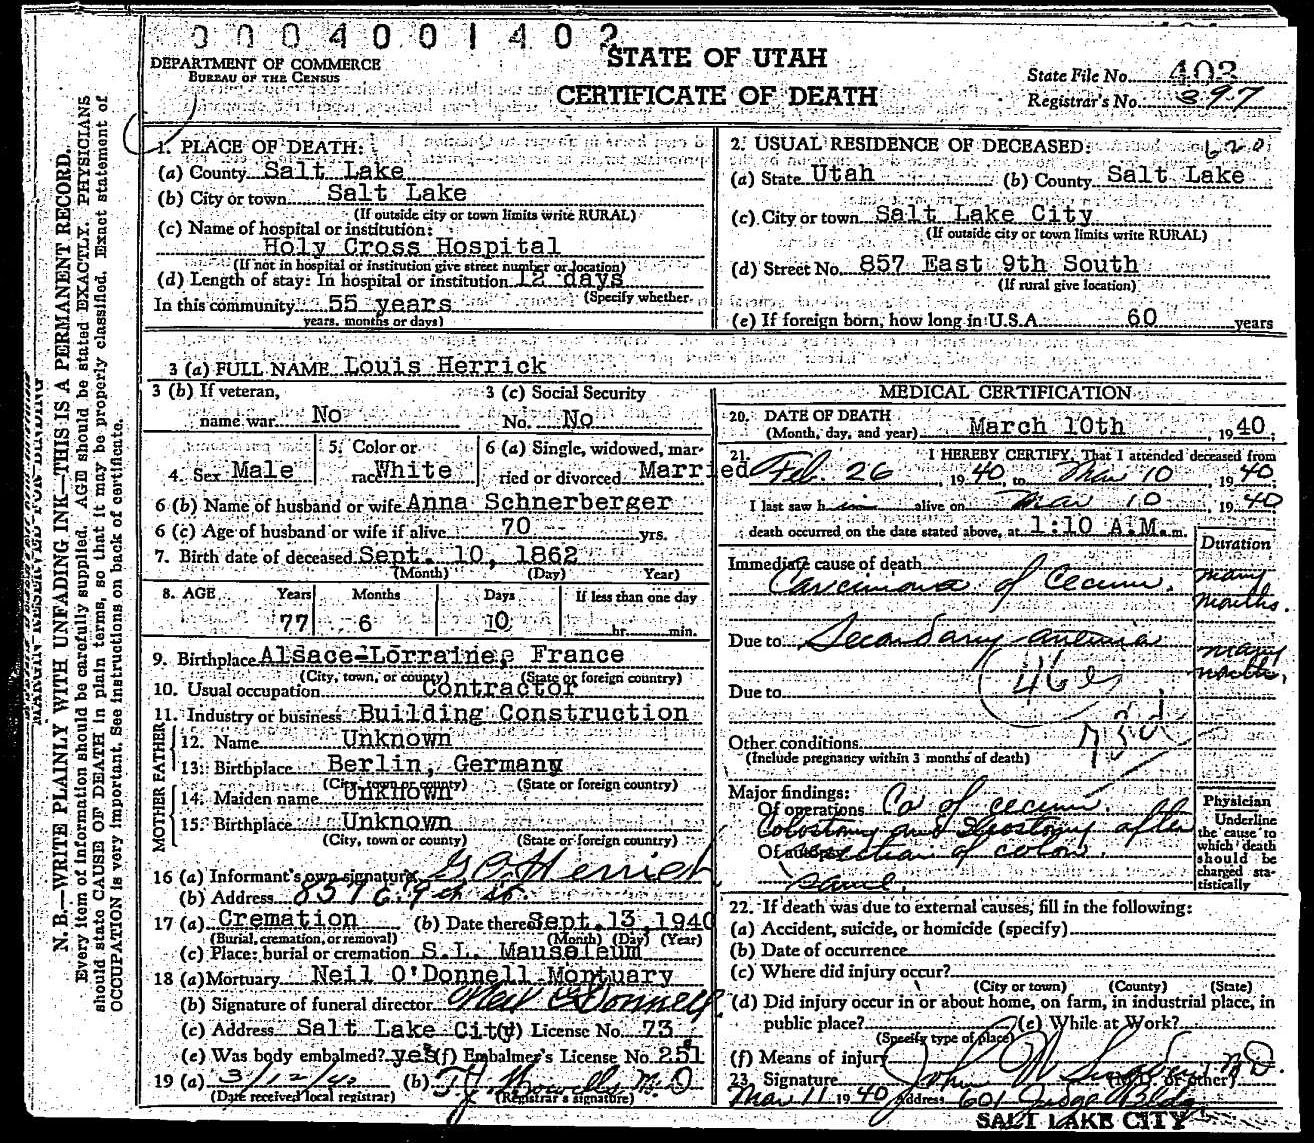 0004001402
STATE OF UTAH
DEPARTMENT OF COMMERCE
BUREAU OF THE CENSUS
CERTIFICATE OF DEATH
State File No. 403
Registrar's No. 397
N. B.—WRITE PLAINLY WITH UNFADING INK—THIS IS A PERMANENT RECORD.
Every item of information should be carefully supplied. AGE should be stated EXACTLY. PHYSICIANS
should state CAUSE OF DEATH in plain terms, so that it may be properly classified. Exact statement of
OCCUPATION is very important. See instructions on back of certificate.
MARGIN RESERVED FOR BINDING
1. PLACE OF DEATH:
(a) County Salt Lake
(b) City or town Salt Lake
(If outside city or town limits write RURAL)
(c) Name of hospital or institution:
Holy Cross Hospital
(If not in hospital or institution give street number or location)
(d) Length of stay: In hospital or institution 12 days
(Specify whether
In this community 55 years
years, months or days)
2. USUAL RESIDENCE OF DECEASED:
(a) State Utah (b) County Salt Lake
(c) City or town Salt Lake City
(If outside city or town limits write RURAL)
(d) Street No. 857 East 9th South
(If rural give location)
(e) If foreign born, how long in U.S.A. 60 years
3 (a) FULL NAME Louis Herrick
3 (b) If veteran, 3 (c) Social Security
name war. No No. No
4. Sex Male 5. Color or race White 6 (a) Single, widowed, married or divorced Married
6 (b) Name of husband or wife Anna Schnerberger
6 (c) Age of husband or wife if alive 70 yrs.
7. Birth date of deceased Sept. 10, 1862
(Month) (Day) Year)
8. AGE Years Months Days If less than one day
77 6 10 hr. min.
9. Birthplace Alsace-Lorraine, France
(City, town, or county) (State or foreign country)
10. Usual occupation Contractor
11. Industry or business Building Construction
FATHER
12. Name Unknown
13. Birthplace Berlin, Germany
(City, town or county) (State or foreign country)
MOTHER
14. Maiden name Unknown
15. Birthplace Unknown
(City, town or county) (State or foreign country)
16 (a) Informant's own signature Herrick
(b) Address 857 E. 9th So.
17 (a) Cremation (b) Date thereof Sept. 13, 1940
(Burial, cremation, or removal) (Month) (Day) (Year)
(c) Place: burial or cremation S.L. Mausoleum
18 (a) Mortuary Neil O'Donnell Mortuary
(b) Signature of funeral director Neil O'Donnell
(c) Address Salt Lake City (d) License No. 73
(e) Was body embalmed? yes (f) Embalmer's License No. 251
19 (a) 3/12/40 (b) M.D
(Date received local registrar) (Registrar's signature)
MEDICAL CERTIFICATION
20. DATE OF DEATH
(Month, day, and year) March 10th, 1940;
21. I HEREBY CERTIFY, That I attended deceased from
Feb. 26, 1940, to Mar 10, 1940
I last saw him alive on Mar 10, 1940
death occurred on the date stated above, at 1:10 A.M. m.
Duration
Immediate cause of death
Carcinoma of Cecum. many months.
Due to Secondary anemia many months.
Due to 46e
73d
Other conditions
(Include pregnancy within 3 months of death)
Major findings:
Of operations Ca of cecum.
Colostomy and Ileostomy after
Of autopsy resection of colon.
same.
Physician
Underline
the cause to
which death
should be
charged sta-
tistically
22. If death was due to external causes, fill in the following:
(a) Accident, suicide, or homicide (specify)
(b) Date of occurrence
(c) Where did injury occur?
(City or town) (County) (State)
(d) Did injury occur in or about home, on farm, in industrial place, in
public place? (e) While at Work?
(Specify type of place)
(f) Means of injury
23. Signature John M. MD.
(M.D. or other)
Mar 11 1940 Address 601 Judge Bldg
SALT LAKE CITY